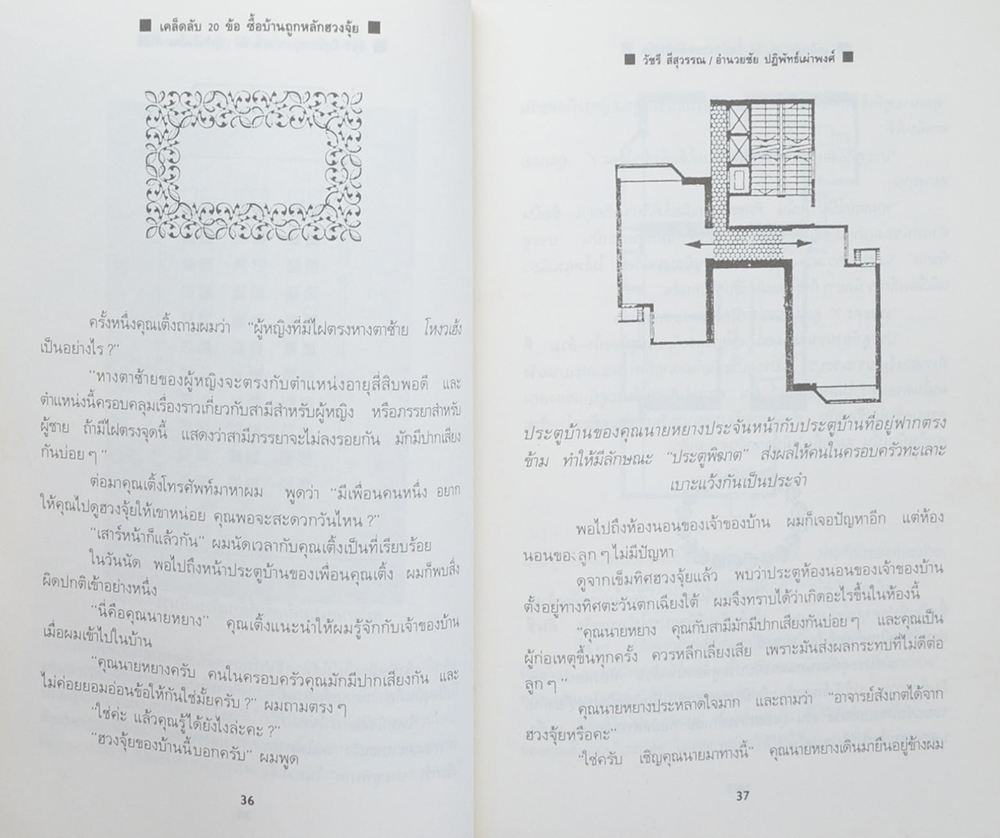 เคล็ดลับ 20 ข้อ ซื้อบ้านถูกหลักฮวงจุ้ย
ครั้งหนึ่งคุณเติ้งถามผมว่า “ผู้หญิงที่มีไฝตรงหางตาซ้าย โหงวเฮ้ง
เป็นอย่างไร ?”
“หางตาซ้ายของผู้หญิงจะตรงกับตำแหน่งอายุสี่สิบพอดี และ
ตำแหน่งนี้ครอบคลุมเรื่องราวเกี่ยวกับสามีสำหรับผู้หญิง หรือภรรยาสำหรับ
ผู้ชาย ถ้ามีไฝตรงจุดนี้ แสดงว่าสามีภรรยาจะไม่ลงรอยกัน มักมีปากเสียง
กันบ่อย ๆ”
ต่อมาคุณเติ้งโทรศัพท์มาหาผม พูดว่า “มีเพื่อนคนหนึ่ง อยาก
ให้คุณไปดูฮวงจุ้ยให้เขาหน่อย คุณพอจะสะดวกวันไหน ?”
“เสาร์หน้าก็แล้วกัน” ผมนัดเวลากับคุณเติ้งเป็นที่เรียบร้อย
ในวันนัด พอไปถึงหน้าประตูบ้านของเพื่อนคุณเติ้ง ผมก็พบสิ่ง
ผิดปกติเข้าอย่างหนึ่ง
“นี่คือคุณนายหยาง” คุณเติ้งแนะนำให้ผมรู้จักกับเจ้าของบ้าน
เมื่อผมเข้าไปในบ้าน
“คุณนายหยางครับ คนในครอบครัวคุณมักมีปากเสียงกัน และ
ไม่ค่อยยอมอ่อนข้อให้กันใช่มั้ยครับ ?” ผมถามตรง ๆ
“ใช่ค่ะ แล้วคุณรู้ได้ยังไงล่ะคะ ?”
“ฮวงจุ้ยของบ้านนี้บอกครับ” ผมพูด
36
วัชรี สีสุวรรณ / อำนวยชัย ปฏิพัทธ์เผ่าพงศ์
ประตูบ้านของคุณนายหยางประจันหน้ากับประตูบ้านที่อยู่ฟากตรง
ข้าม ทำให้มีลักษณะ “ประตูพิฆาต” ส่งผลให้คนในครอบครัวทะเลาะ
เบาะแว้งกันเป็นประจำ
พอไปถึงห้องนอนของเจ้าของบ้าน ผมก็เจอปัญหาอีก แต่ห้อง
นอนของลูก ๆ ไม่มีปัญหา
ดูจากเข็มทิศฮวงจุ้ยแล้ว พบว่าประตูห้องนอนของเจ้าของบ้าน
ตั้งอยู่ทางทิศตะวันตกเฉียงใต้ ผมจึงทราบได้ว่าเกิดอะไรขึ้นในห้องนี้
“คุณนายหยาง คุณกับสามีมักมีปากเสียงกันบ่อย ๆ และคุณเป็น
ผู้ก่อเหตุขึ้นทุกครั้ง ควรหลีกเลี่ยงเสีย เพราะมันส่งผลกระทบที่ไม่ดีต่อ
ลูก ๆ”
คุณนายหยางประหลาดใจมาก และถามว่า “อาจารย์สังเกตได้จาก
ฮวงจุ้ยหรือคะ”
“ใช่ครับ เชิญคุณนายมาทางนี้” คุณนายหยางเดินมายืนอยู่ข้างผม
37